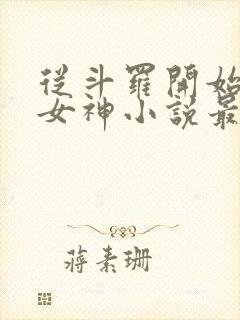 從斗羅開始
女神小說最
蔣素珊